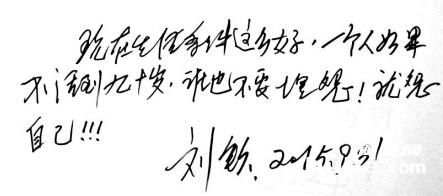 现在生活条件这么好，一个人如果
不活到九十岁，谁也不要埋怨！就怨
自己!!!
刘钦. 2015.9.31